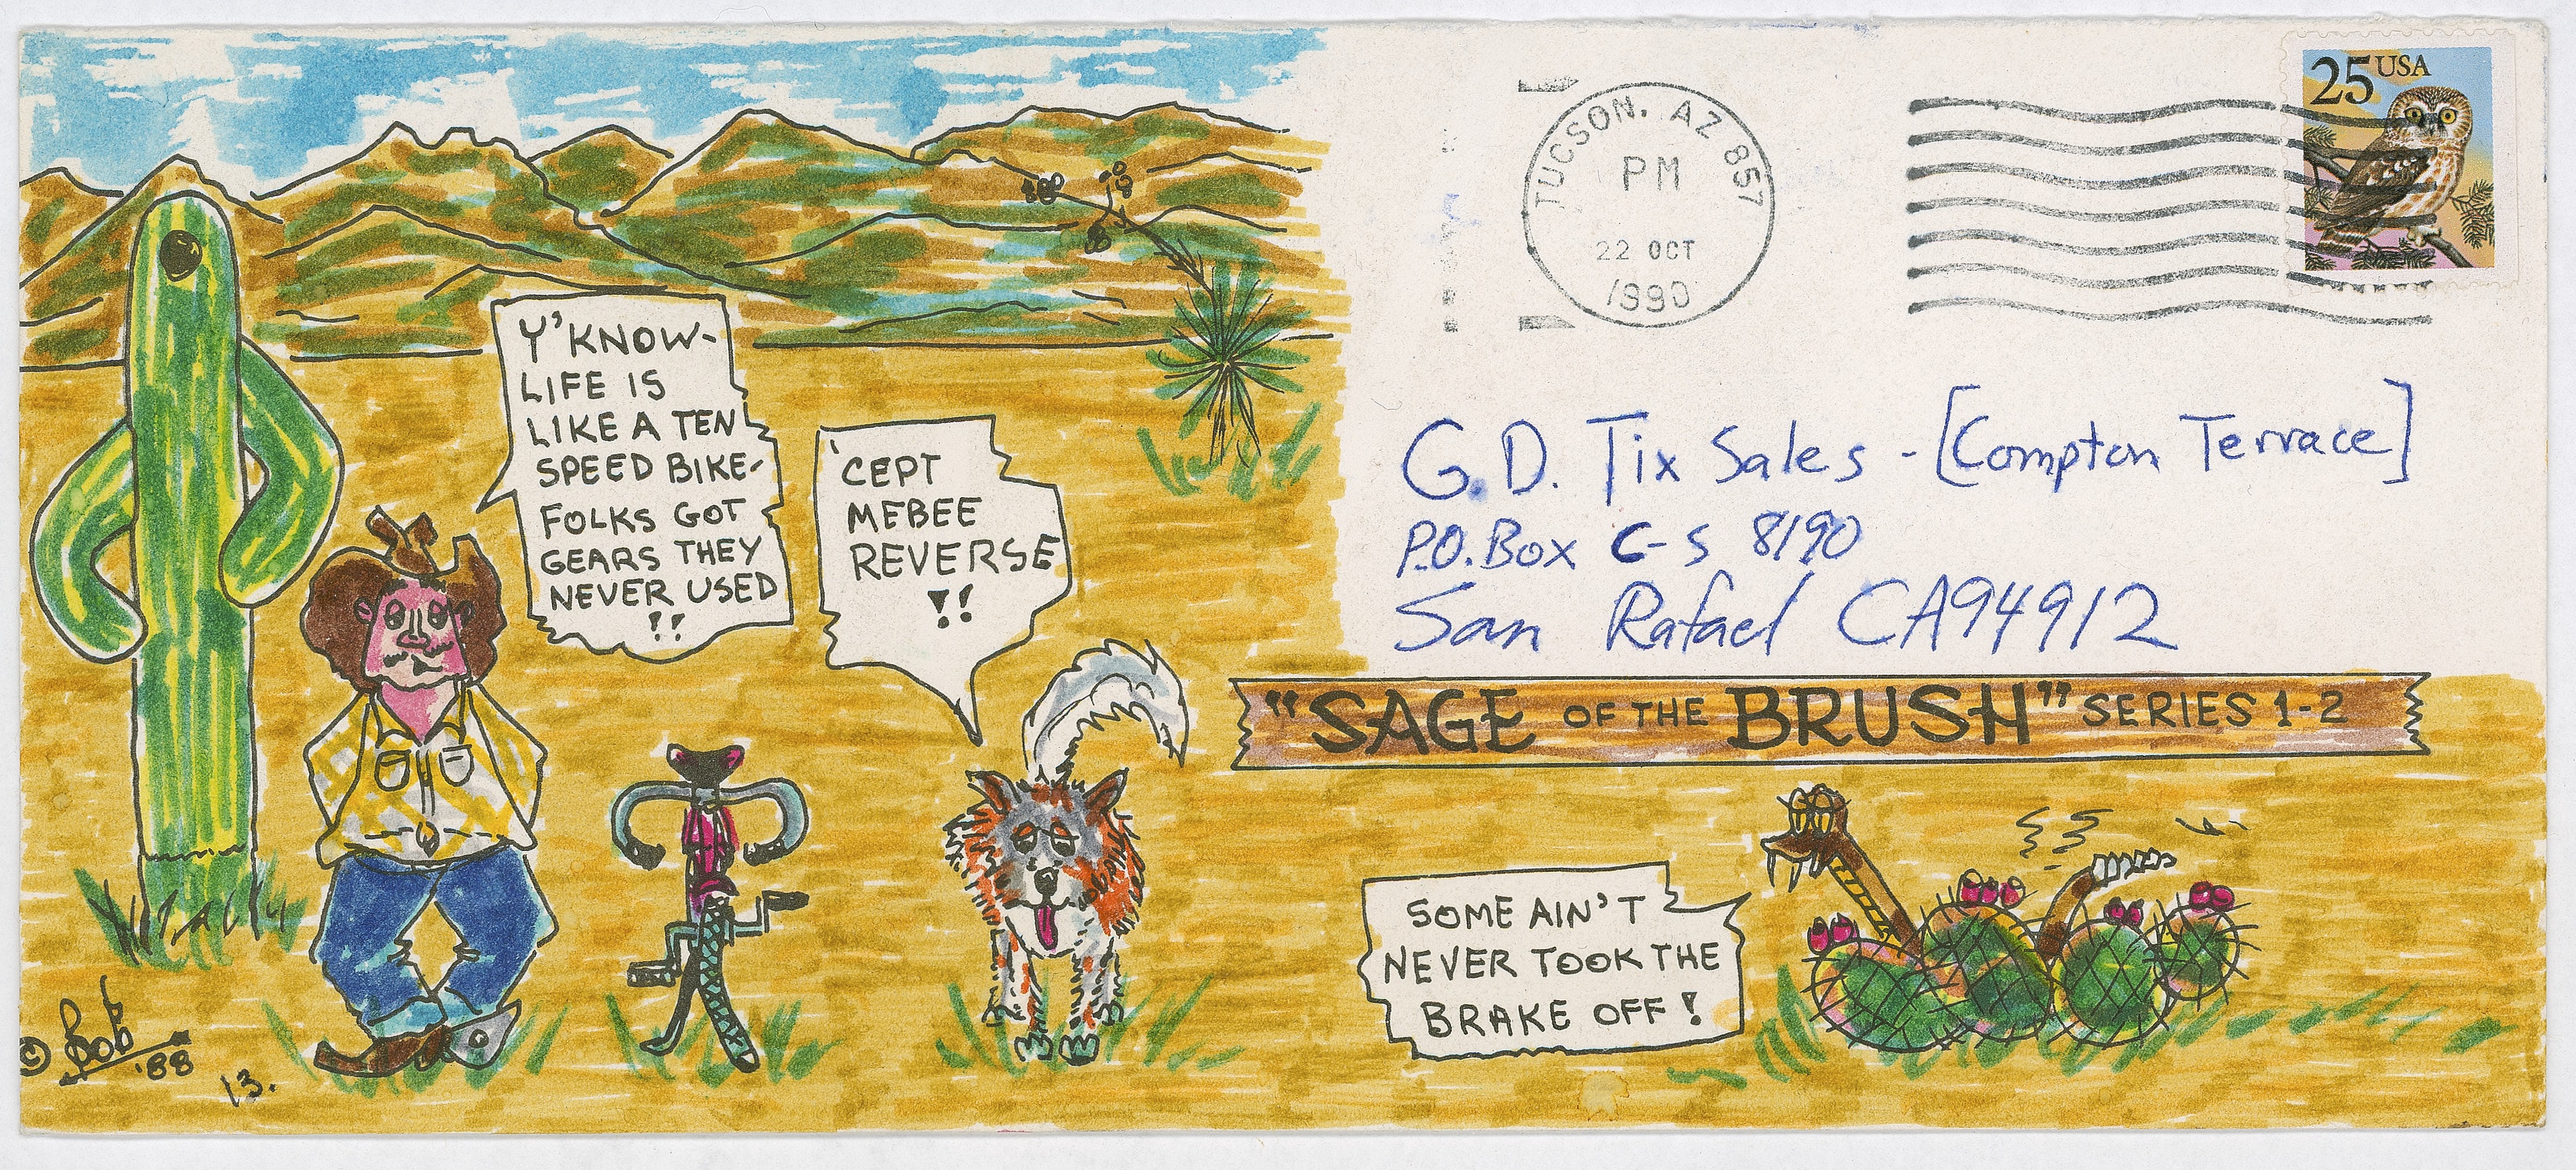 25 USA
TUCSON, AZ 857
PM
22 OCT
1990
Y'KNOW-
LIFE IS
LIKE A TEN
SPEED BIKE-
FOLKS GOT
GEARS THEY
NEVER USED
!!
'CEPT
MEBEE
REVERSE
!!
G.D. Tix Sales - [Compton Terrace]
P.O. Box C-S 8190
San Rafael CA 94912
"SAGE OF THE BRUSH" SERIES 1-2
SOME AIN'T
NEVER TOOK THE
BRAKE OFF!
© Bob
'88
13.